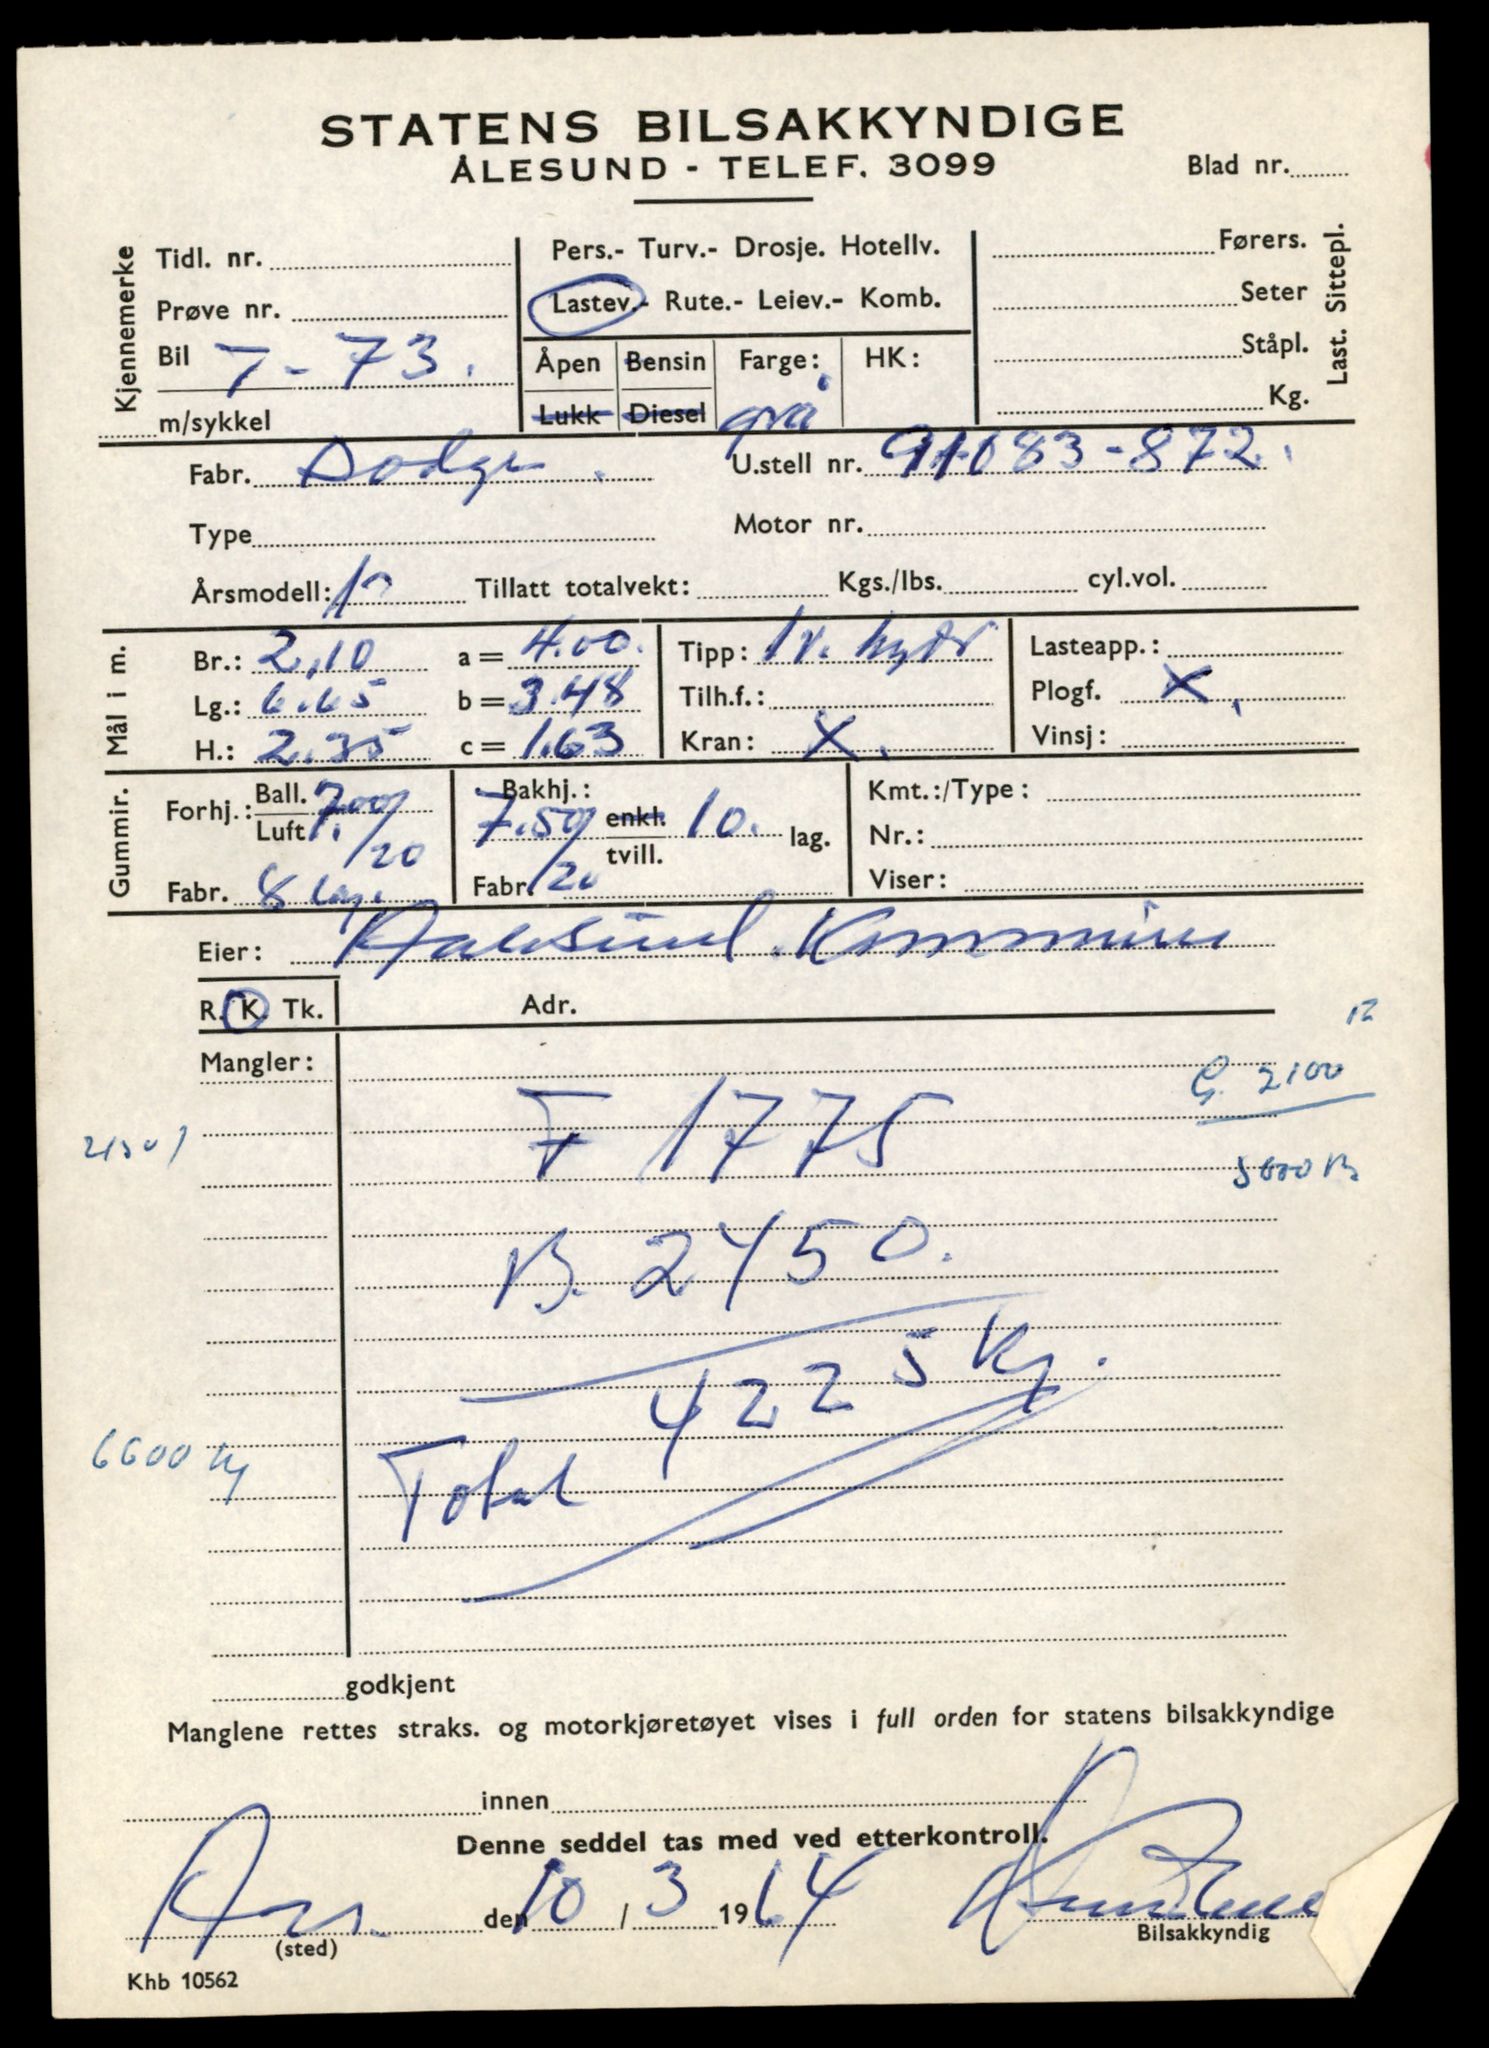 STATENS BILSAKKYNDIGE
ÅLESUND - TELEF. 3099
Blad nr.
Kjennemerke
Tidl. nr.
Prøve nr.
Bil T-73.
m/sykkel
Pers.- Turv.- Drosje. Hotellv.
Lastev.- Rute.- Leiev.- Komb.
Åpen Bensin Farge: HK:
Lukk Diesel grå
Førers.
Seter
Ståpl.
Kg.
Last. Sittepl.
Fabr. Dodge. U.stell nr. 91083-872.
Type Motor nr.
Årsmodell: Tillatt totalvekt: Kgs./lbs. cyl.vol.
Mål i m.
Br.: 2,10 a = 4.00. Tipp: hydr Lasteapp.:
Lg.: 6.65 b = 3.48 Tilh.f.: Plogf. X.
H.: 2.35 c = 1.63 Kran: X. Vinsj:
Gummir.
Forhj.: Ball. 7.00/20
Luft
Fabr. 8 lag.
Bakhj.:
7.50/20 enkl. 10. lag.
tvill.
Fabr.
Kmt.:/Type:
Nr.:
Viser:
Eier: Aalesund Kommune
R. K. Tk. Adr.
Mangler:
G. 2100
F 1775
B. 2450.
4225 kg.
6600 kg
Total
godkjent
Manglene rettes straks. og motorkjøretøyet vises i full orden for statens bilsakkyndige
innen
Denne seddel tas med ved etterkontroll.
den 10 / 3 1964
(sted)
Bilsakkyndig
Khb 10562